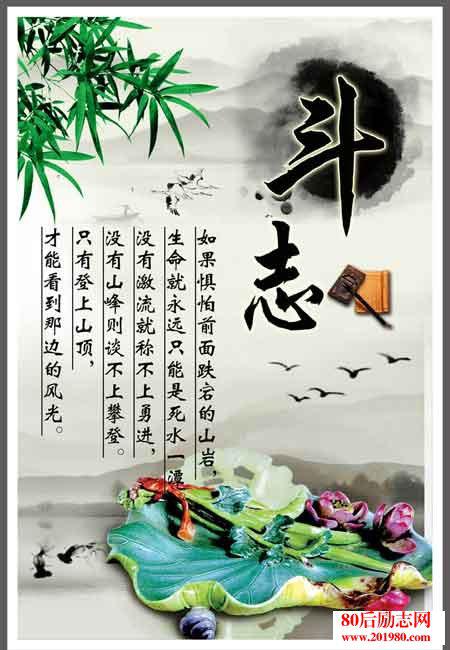 斗志
如果惧怕前面跌宕的山岩，
生命就永远只能是死水一潭
没有激流就称不上勇进，
没有山峰则谈不上攀登。
只有登上山顶，
才能看到那边的风光。
80后励志网
www.201980.com